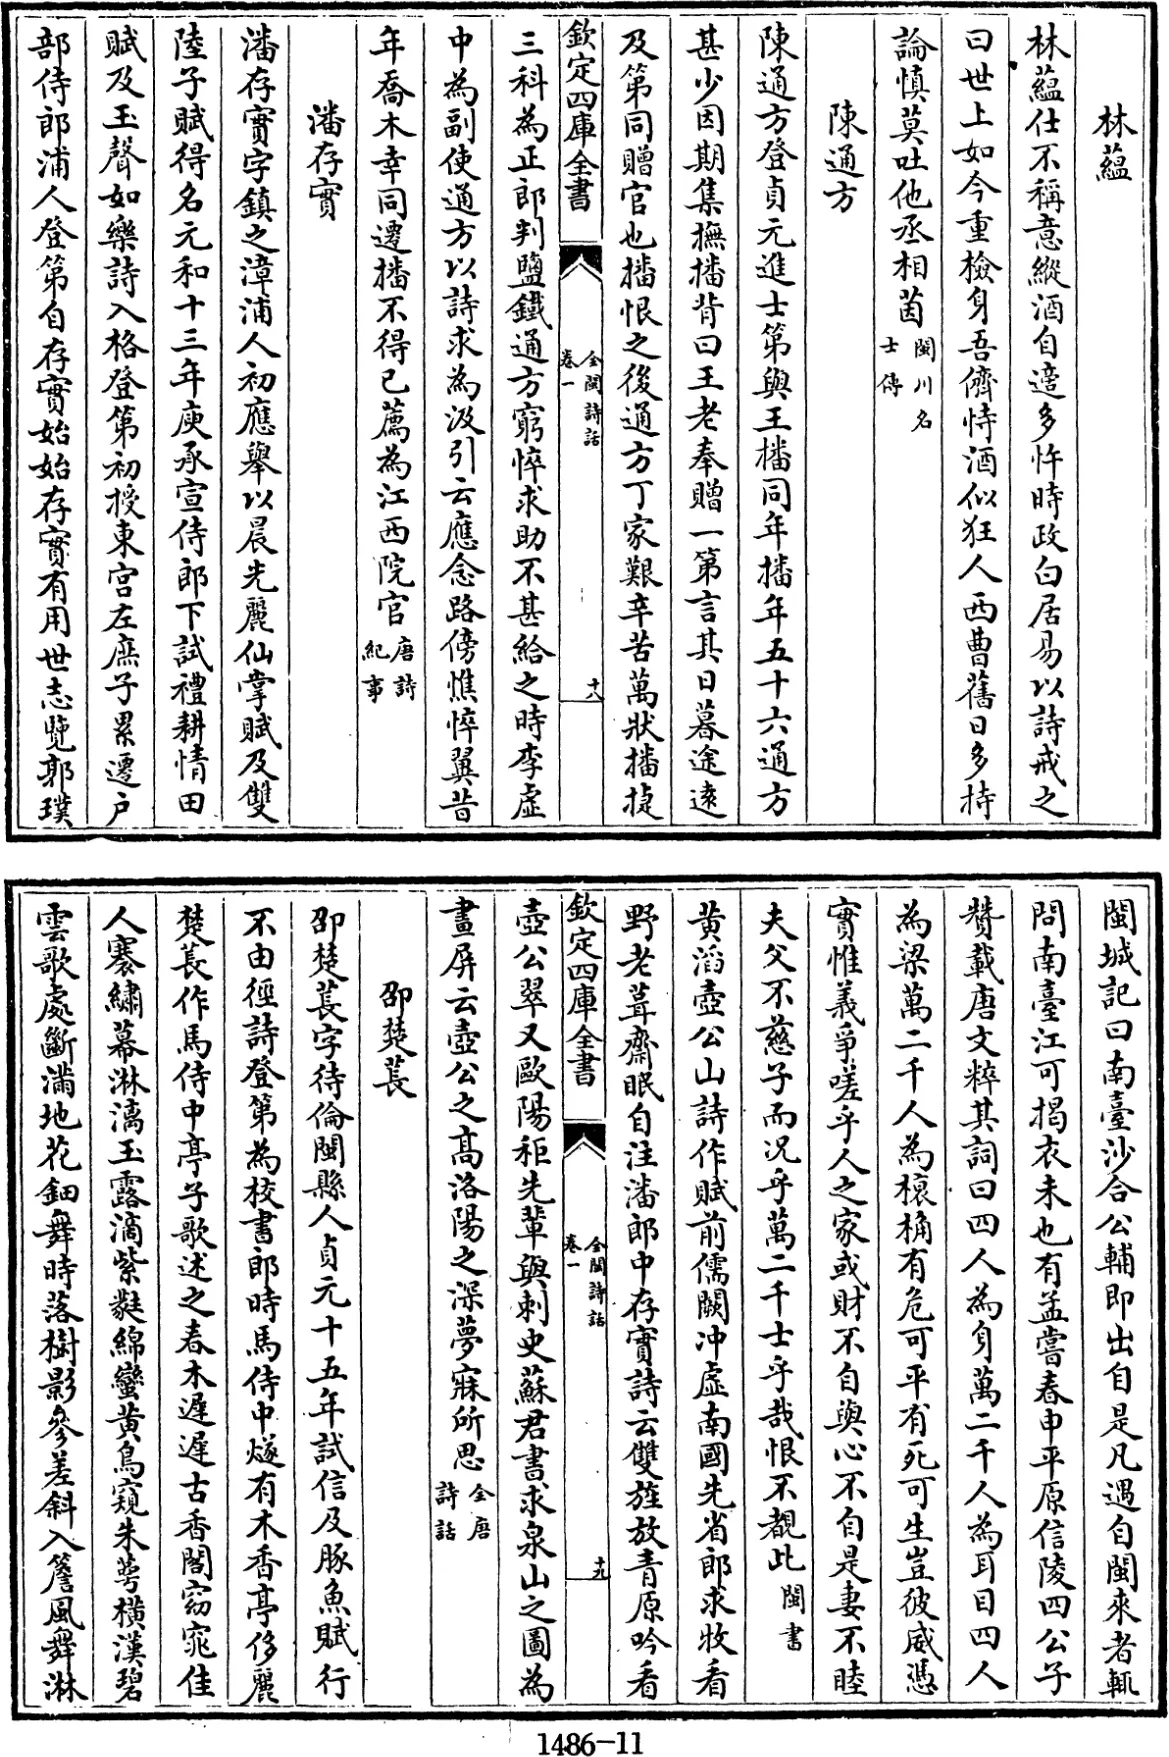 林蘊
林蘊仕不稱意縱酒自適多忤時政白居易以詩戒之
曰世上如今重檢身吾儕恃酒似狂人西曹舊日多持
論慎莫吐他丞相茵閩川名士傳
陳通方
陳通方登貞元進士第與王播同年播年五十六通方
甚少因期集撫播背曰王老奉贈一第言其日暮途遠
及第同贈官也播恨之後通方丁家艱辛苦萬狀播捷
欽定四庫全書
全閩詩話
卷一
十八
三科為正郎判鹽鐵通方窮悴求助不甚給之時李虛
中為副使通方以詩求為汲引云應念路傍憔悴翼昔
年喬木幸同遷播不得已薦為江西院官唐詩紀事
潘存實
潘存實字鎮之漳浦人初應舉以晨光麗仙掌賦及雙
陸子賦得名元和十三年庾承宣侍郎下試禮耕情田
賦及玉聲如樂詩入格登第初授東宮左庶子累遷户
部侍郎浦人登第自存實始始存實有用世志覽郭璞
閩城記曰南臺沙合公輔即出自是凡遇自閩來者輒
問南臺江可揭衣未也有孟嘗春申平原信陵四公子
贊載唐文粹其詞曰四人為身萬二千人為耳目四人
為梁萬二千人為榱桷有危可平有死可生豈彼威憑
實惟義爭嗟乎人之家或財不自與心不自是妻不睦
夫父不慈子而况乎萬二千士乎哉恨不覩此閩書
黄滔壺公山詩作賦前儒闕冲虛南國先省郎求牧看
野老葺齋眠自注潘郎中存實詩云雙旌放青原吟看
欽定四庫全書
全閩詩話
卷一
十九
壺公翠又歐陽秬先輩與刺史蘇君書求泉山之圖為
畫屏云壺公之高洛陽之深夢寐所思全唐詩話
邵楚萇
邵楚萇字待倫閩縣人貞元十五年試信及豚魚賦行
不由徑詩登第為校書郎時馬侍中燧有木香亭侈麗
楚萇作馬侍中亭子歌述之春木遲遲古香閣窈窕佳
人褰繡幕淋漓玉露滴紫蕤綿蠻黄鳥窺朱萼横漢碧
雲歌處斷滿地花鈿舞時落樹影參差斜入簷風舞淋
1486-11